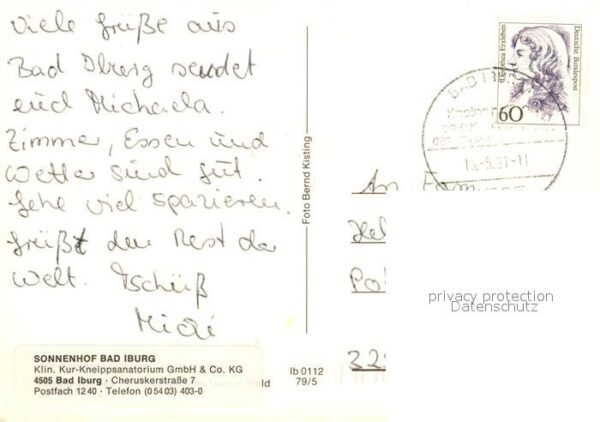 Viele Grüße aus
Bad Iburg sendet
euch Michaela.
Zimmer, Essen und
Wetter sind gut.
Gehe viel spazieren.
Grüßt den Rest der
Welt. Tschüß
Michi
SONNENHOF BAD IBURG
Klin. Kur-Kneippsanatorium GmbH & Co. KG
4505 Bad Iburg · Cheruskerstraße 7
Postfach 1240 · Telefon (05403) 403-0
Foto Bernd Kisting
Ib 0112
79/5
Dorothea Erxleben
Deutsche Bundespost
60
BAD
15.-5.91-11
An Fam
Hel
Pos
privacy protection
Datenschutz